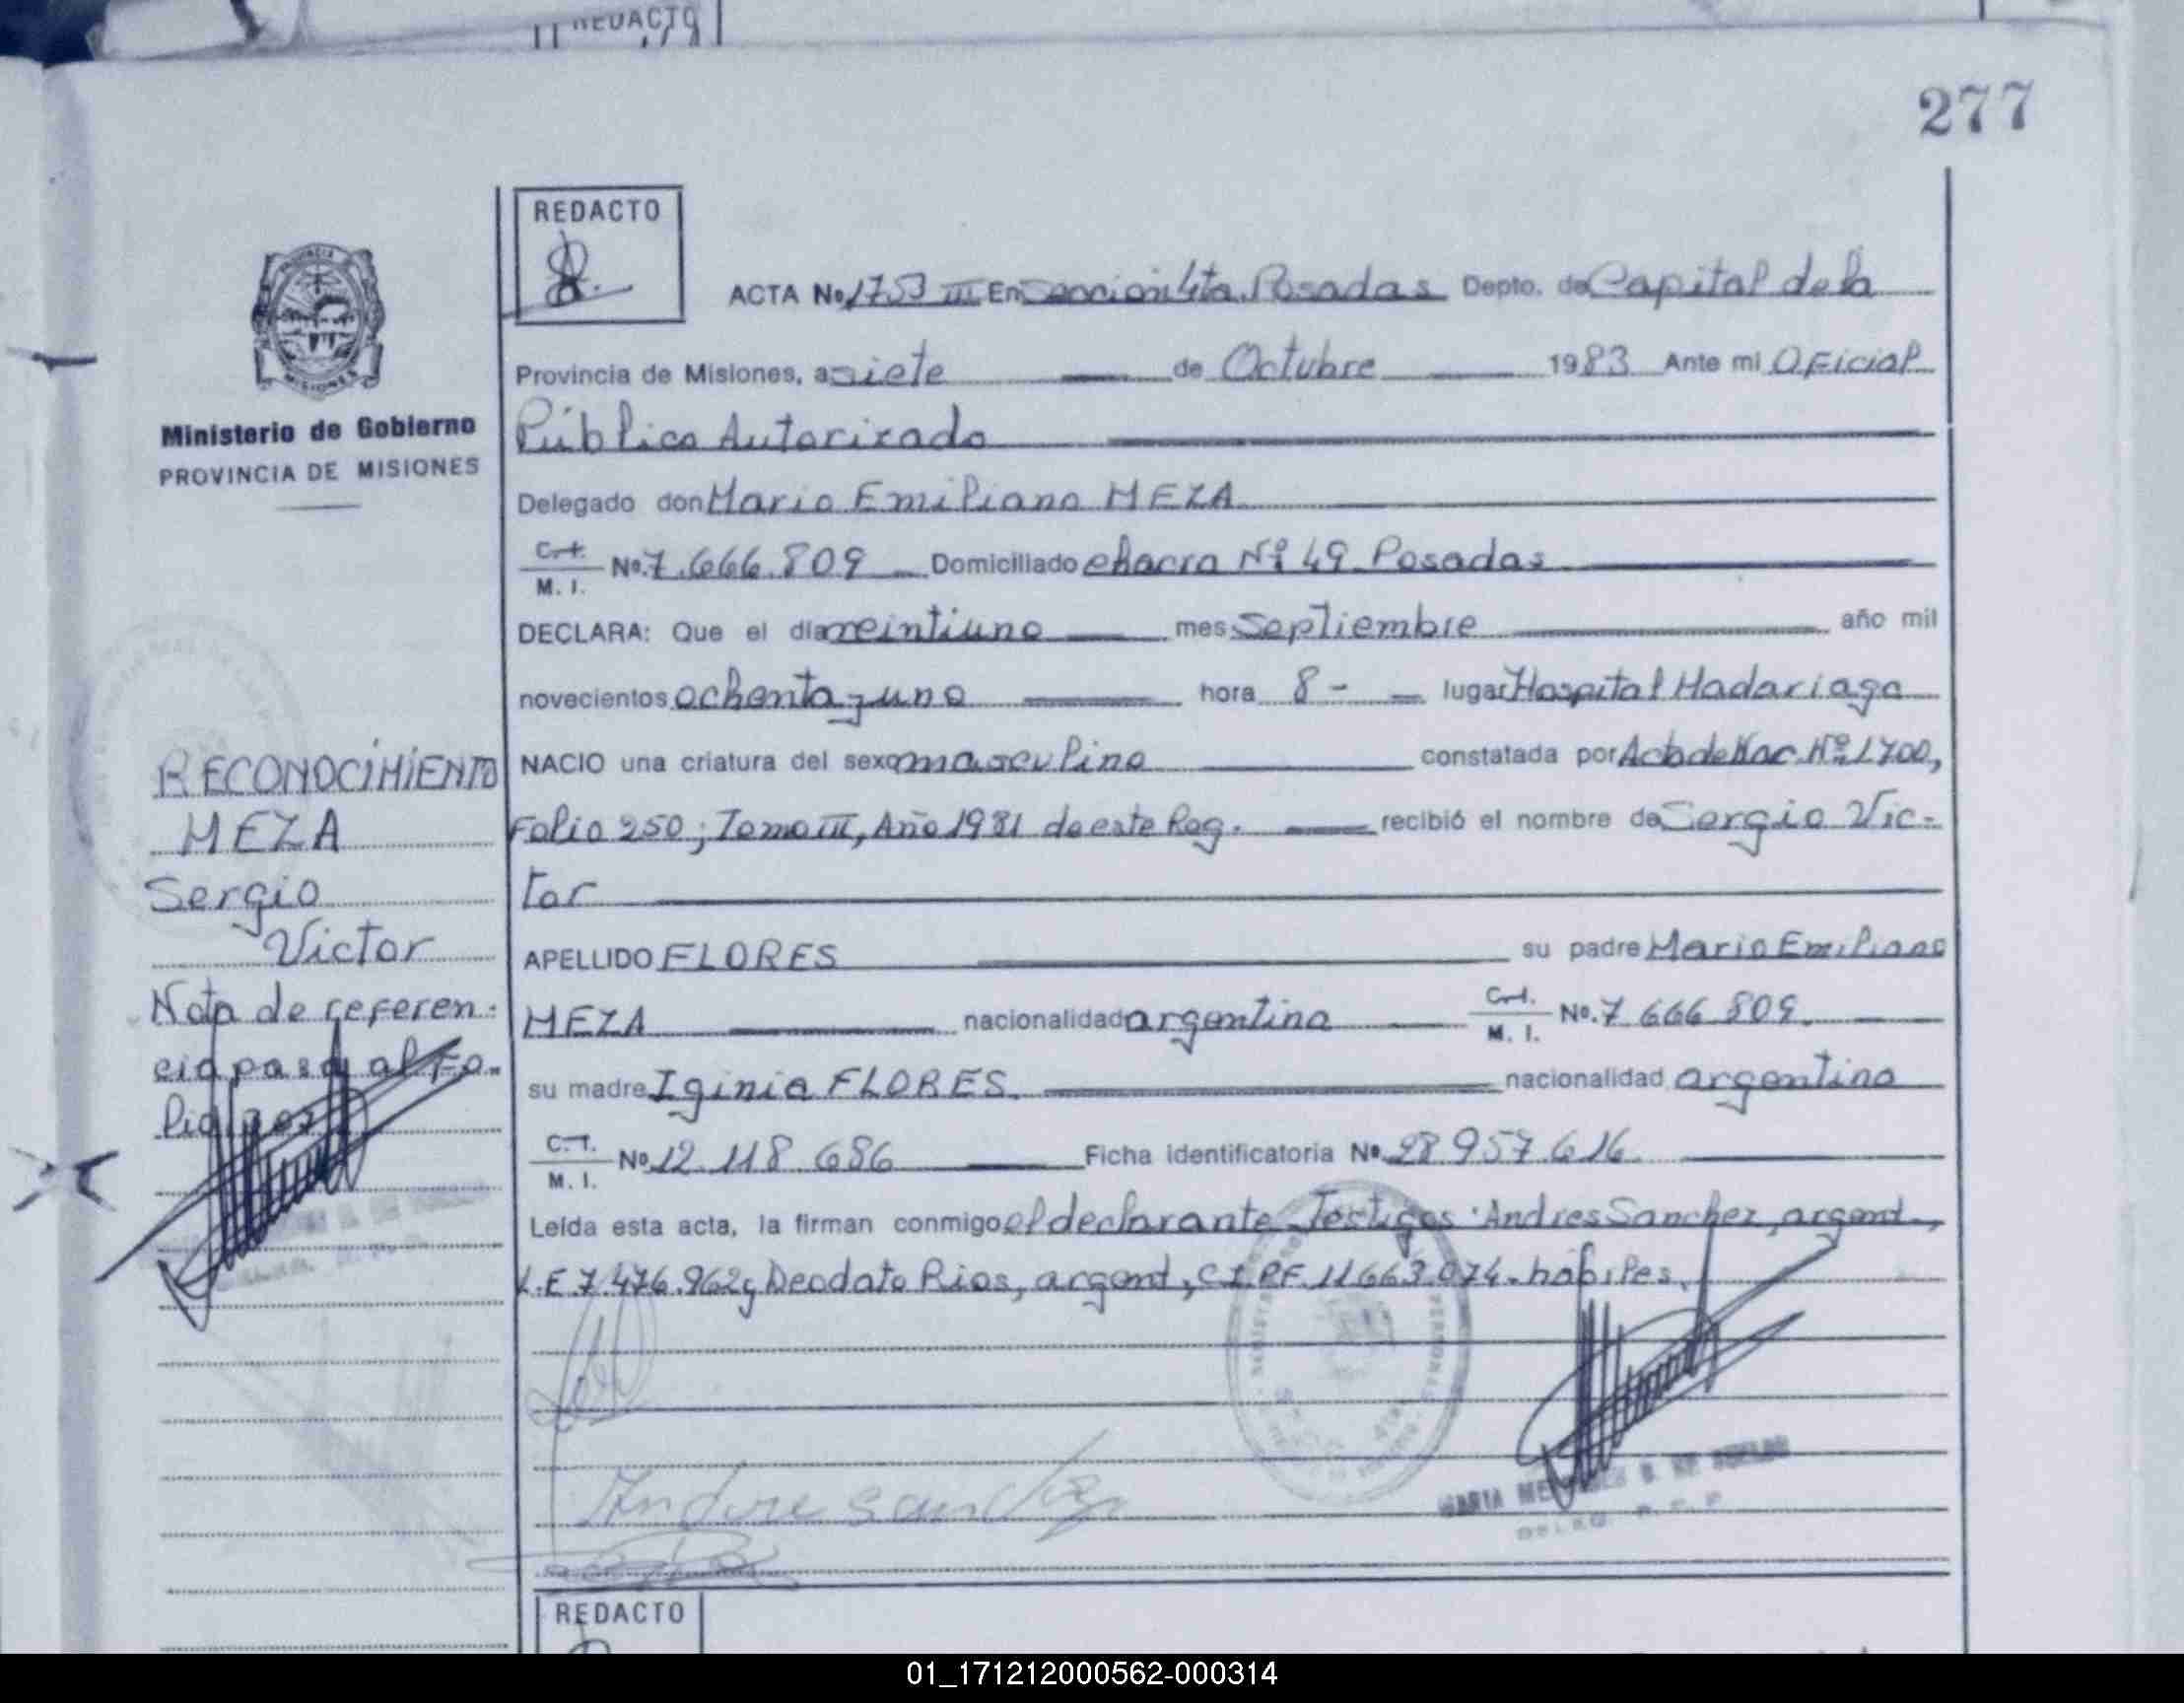 REDACTO
277
REDACTO
ACTA No 1753 III En Sección 4ta. Posadas Depto. de Capital de la
Provincia de Misiones, a siete de Octubre 1983 Ante mi Oficial
Público Autorizado
Ministerio de Gobierno
PROVINCIA DE MISIONES
Delegado don Mario Emiliano MEZA
C.I. M. I. No. 7.666.809 Domiciliado chacra Nº 49 Posadas
DECLARA: Que el día veintiuno mes Septiembre año mil
novecientos ochenta y uno hora 8 - lugar Hospital Madariaga
NACIO una criatura del sexo masculino constatada por Acta de Nac. Nº 1700,
Folio 250; Tomo III, Año 1981 de este Reg. recibió el nombre de Sergio Vic-
tor
RECONOCIMIENTO
MEZA
Sergio
Victor
Nota de referen-
cia pasa al Fo-
lio
APELLIDO FLORES su padre Mario Emiliano
MEZA nacionalidad argentina C.I. M. I. No. 7 666 809
su madre Iginia FLORES. nacionalidad argentina
C.I. M. I. No 12.118.686 Ficha identificatoria No 28 957 616
Leída esta acta, la firman conmigo el declarante Testigos: Andres Sanchez, argent.,
L.E 7.476.962 y Deodato Rios, argent, C.I.P.F. 11663.074. hábiles.
Andre Sanchez
MARIA
REDACTO
01_171212000562-000314